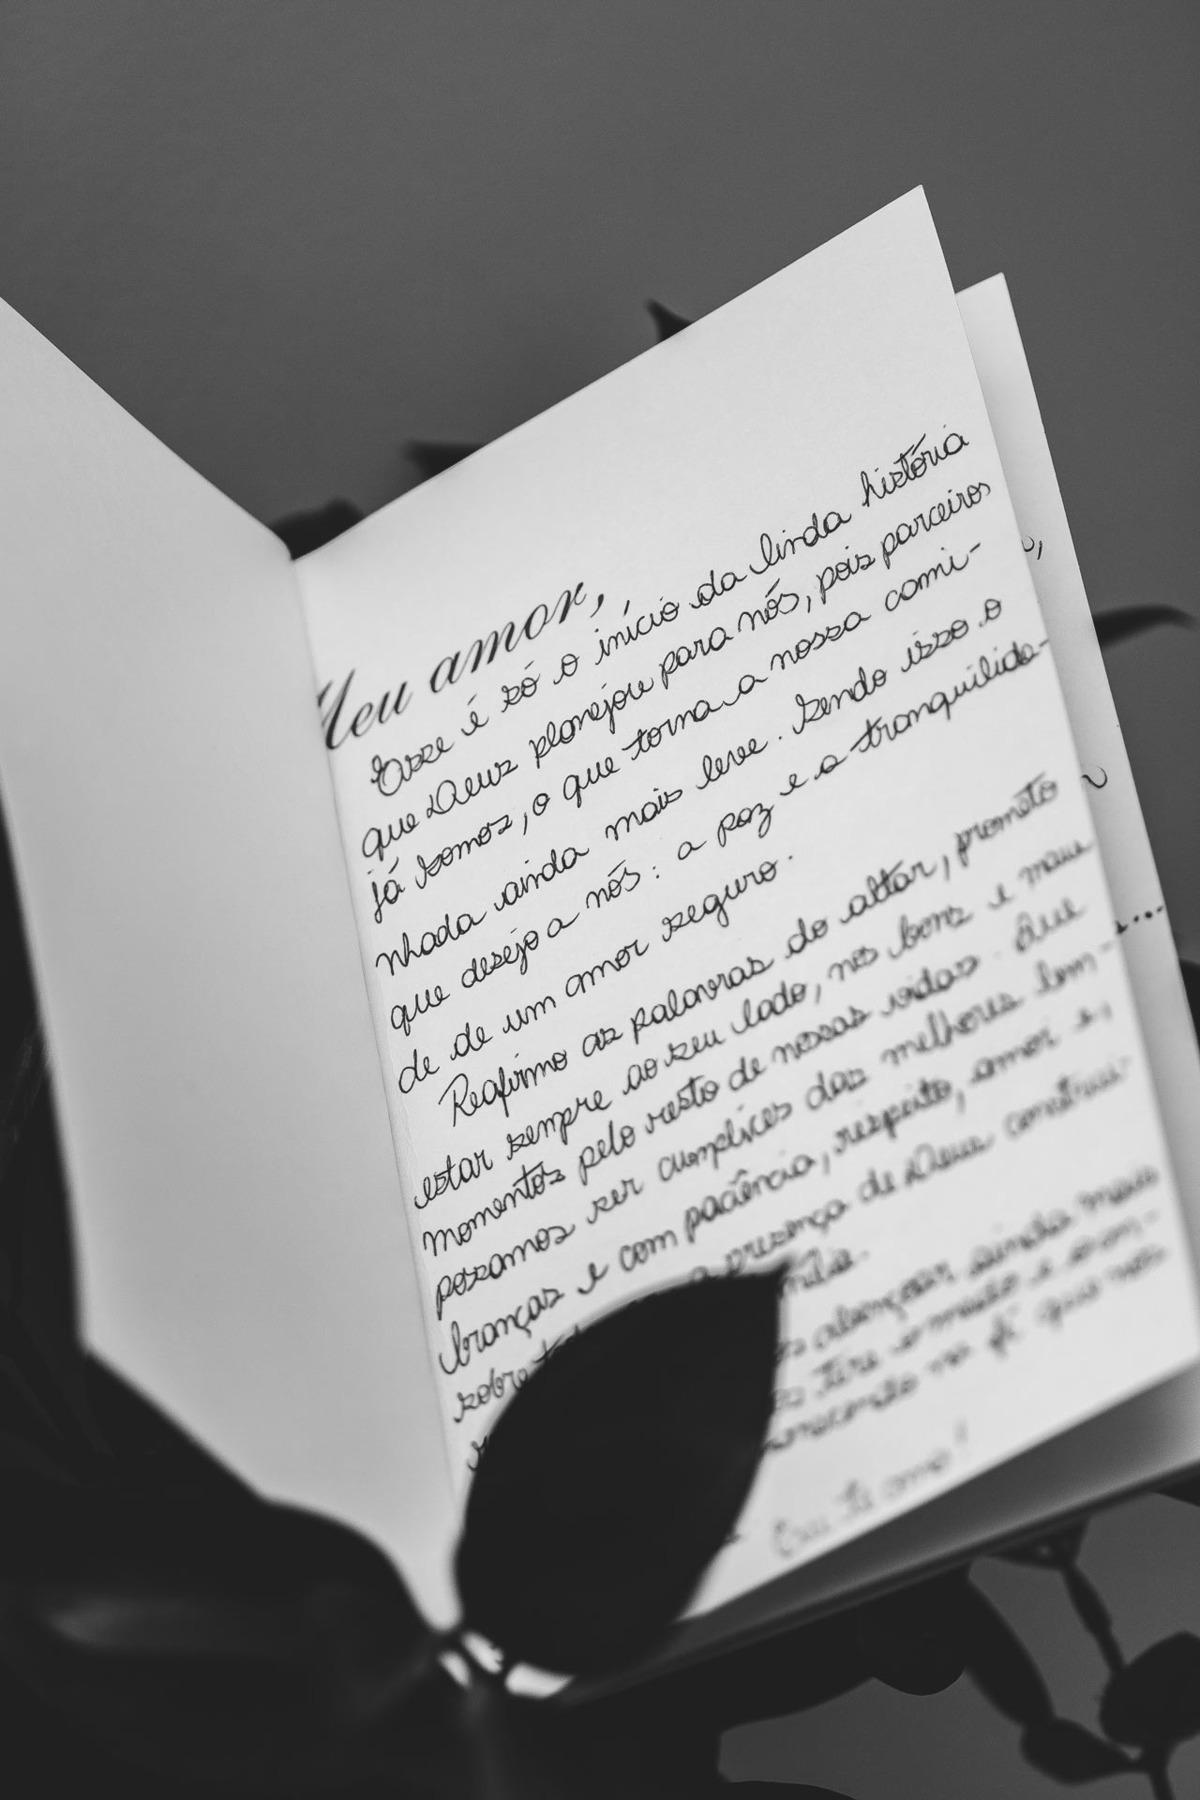 Meu amor,
Esse é só o início da linda história
que Deus planejou para nós, pois parceiros
já somos, o que torna a nossa cami-
nhada ainda mais leve. Sendo isso o
que desejo a nós: a paz e a tranquilida-
de de um amor seguro.
Reafirmo as palavras do altar, prometo
estar sempre ao seu lado, nos bons e maus
momentos pelo resto de nossas vidas. Que
possamos ser cumplices das melhores lem-
branças e com paciência, respeito, amor e,
sobre presença de Deus construir
abençoar ainda mais
tire o
na fé que nos
Eu te amo!